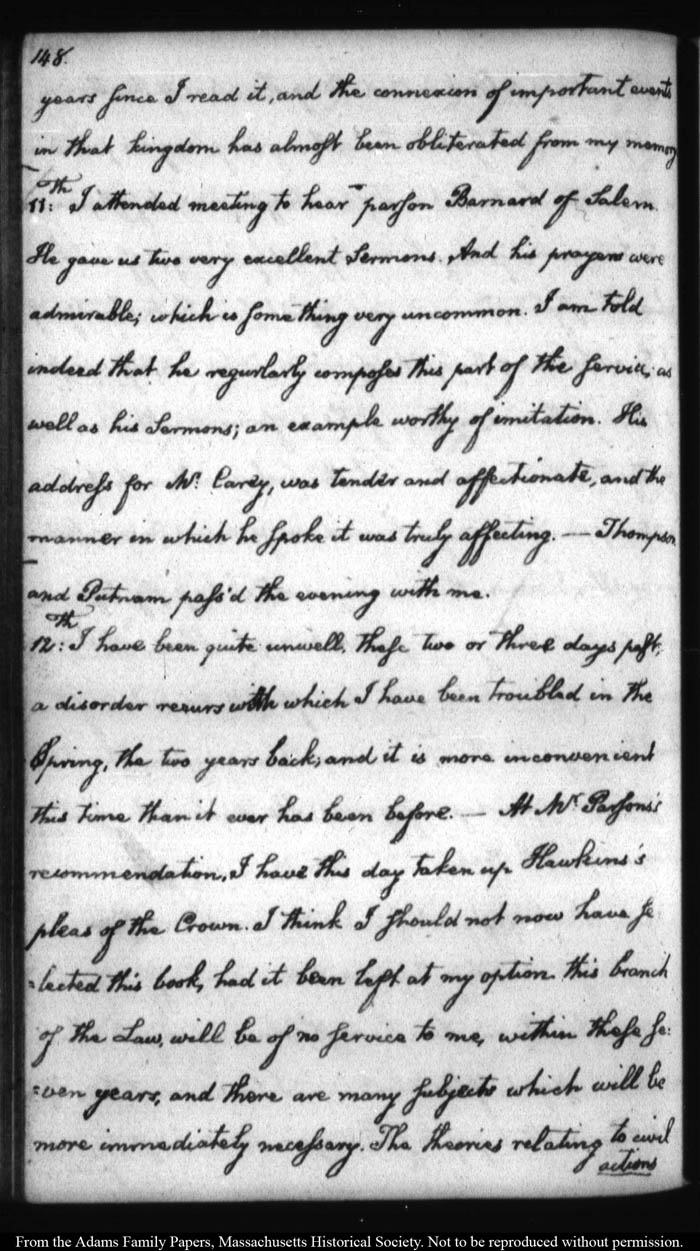 148.
years since I read it, and the connexion of important events
in that kingdom has almost been obliterated from my memory
11:th I attended meeting to hear parson Barnard of Salem.
He gave us two very excellent Sermons. And his prayers were
admirable; which is something very uncommon. I am told
indeed that he regurlarly composes this part of the service, as
well as his Sermons; an example worthy of imitation. His
address for Mr. Carey, was tender and affectionate, and the
manner in which he spoke it was truly affecting. — Thompson
and Putnam pass'd the evening with me.
12:th I have been quite unwell, these two or three days past;
a disorder recurs with which I have been troubled in the
Spring, the two years back; and it is more inconvenient
this time than it ever has been before. — At Mr. Parsons's
recommendation, I have this day taken up Hawkins's
pleas of the Crown. I think I should not now have se
=lected this book, had it been left at my option this branch
of the Law, will be of no service to me, within these se:
=ven years, and there are many subjects which will be
more immediately necessary. The theories relating to civil
actions
From the Adams Family Papers, Massachusetts Historical Society. Not to be reproduced without permission.